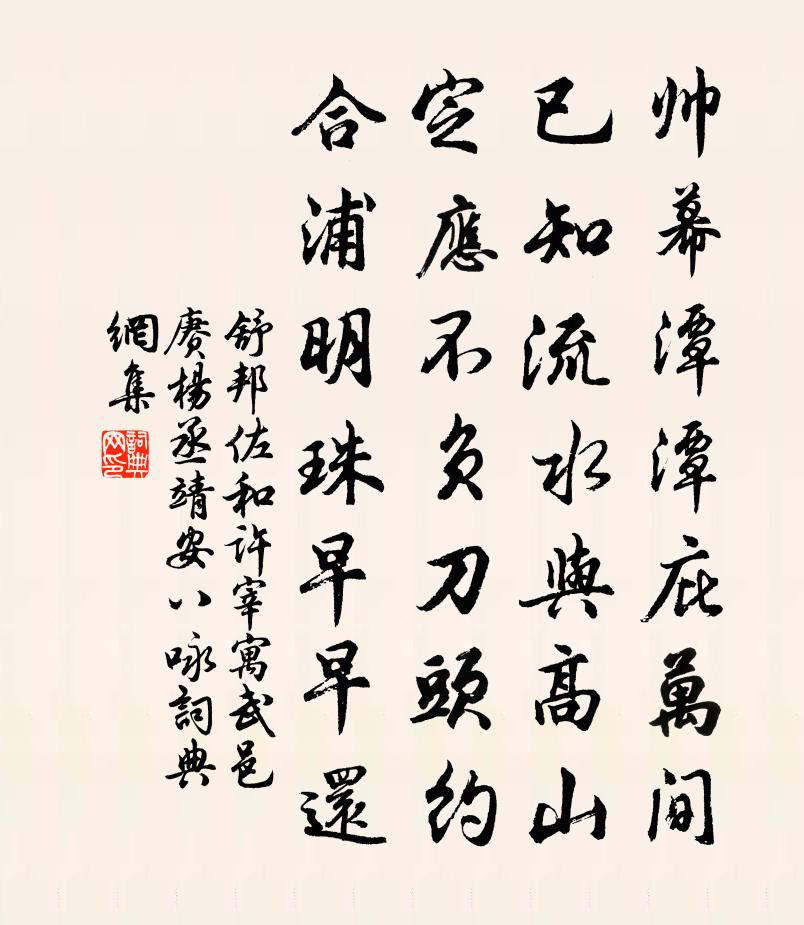 帅幕潭潭庇萬间
已知流水與高山
定應不負刀頭約
合浦明珠早早還
舒邦佐和许宰寓武邑
賡楊丞靖安八咏詞典
網集
詞典网印